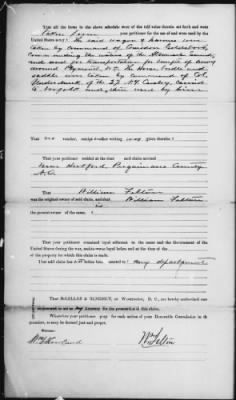 That all the items in the above schedule were of the value therein set forth and were
taken from your petitioner for the use of and were used by the
United States army: The said wagon & harness were
taken by command of
commanding the waters of the Albemarle Sound,
and used for transportation for troops of
around Plymouth, N.C. The Horse, saddle and
saddle was taken by command of Col.
of the 27 N.Y. Cavalry, carried
to and there used by him
That no voucher, receipt or other writing was given therefor:
That your petitioner resided at the time said claim accrued
near Hertford Perquimans County
N.C.
That William Felton
was the original owner of said claim, and that William Felton
is
the present owner of the same.
That your petitioner remained loyal adherent to the cause and the Government of the
United States during the war, and was so loyal before and at the time of the
of the property for which this claim is made.
That said claim has not before been presented to any department
That McLellan & , of Washington, D. C., are hereby authorized
to act as my Attorney for the prosecution of this claim.
Wherefore your petitioner pray for such action of your Honorable Commission in the
premises, as may be deemed just and proper.
Wm Felton